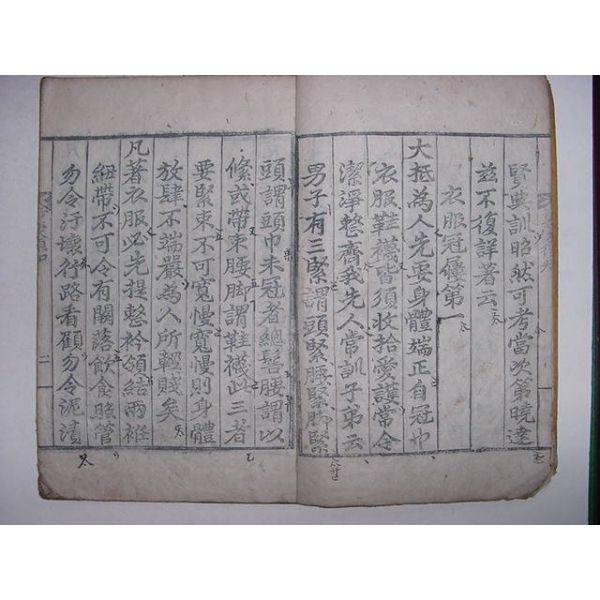 賢典訓昭然可考當次第曉達
玆不復詳著云
衣服冠屨第一
大抵為人先要身體端正自冠巾
衣服鞋襪皆須收拾愛護常令
潔淨整齊我先人常訓子弟云
男子有三緊謂頭緊腰緊脚緊
頭謂頭巾未冠者總髻腰謂以
絛或帶束腰脚謂鞋襪此三者
要緊束不可寬慢寬慢則身體
放肆不端嚴為人所輕賤矣
凡著衣服必先提整衿領結兩衽
紐帶不可令有闕落飲食照管
勿令汙壞行路看顧勿令泥漬